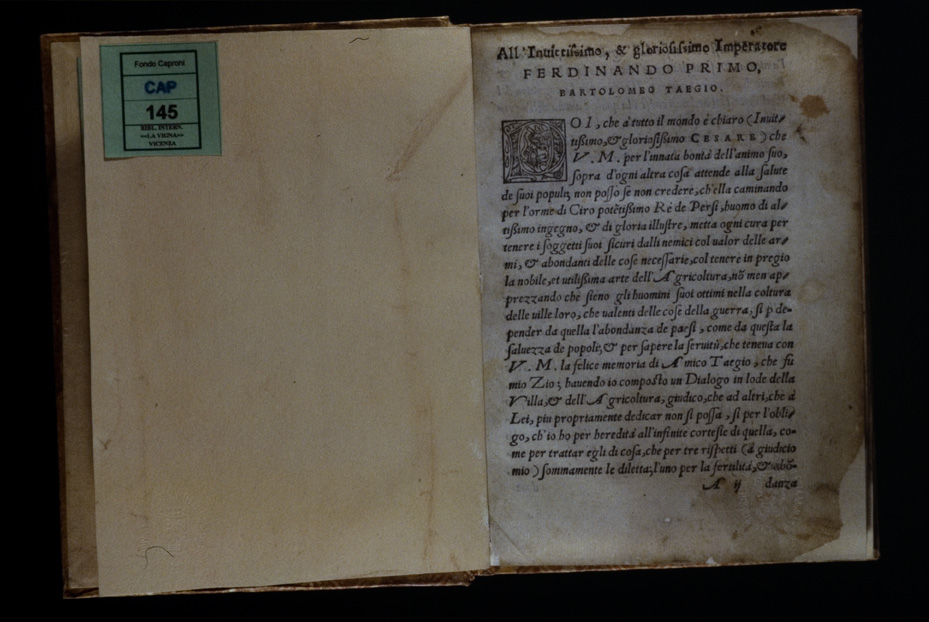 Fondo Caproni
CAP
145
BIBL. INTERN.
«LA VIGNA»
VICENZA
All'Inuittissimo, & gloriosissimo Imperatore
FERDINANDO PRIMO,
BARTOLOMEO TAEGIO.
POI, che à tutto il mondo è chiaro (Inuit-
tißimo, & gloriosißimo CESARE) che
V. M. per l'innata bontà dell'animo suo,
sopra d'ogni altra cosa attende alla salute
de suoi populi; non posso se non credere, ch'ella caminando
per l'orme di Ciro potẽtißimo Rè de Persi, huomo di al-
tißimo ingegno, & di gloria illustre, metta ogni cura per
tenere i soggetti suoi sicuri dalli nemici col ualor delle ar-
mi, & abondanti delle cose necessarie, col tenere in pregio
la nobile, et utilißima arte dell'Agricoltura, nõ men ap-
prezzando che sieno gli huomini suoi ottimi nella coltura
delle uille loro, che ualenti delle cose della guerra, si p de-
pender da quella l'abondanza de paesi, come da questa la
saluezza de popoli; & per sapere la seruitù, che teneua con
V. M. la felice memoria di Amico Taegio, che fù
mio Zio; hauendo io composto un Dialogo in lode della
Villa, & dell'Agricoltura, giudico, che ad altri, che à
Lei, piu propriamente dedicar non si possa, si per l'obli-
go, ch'io ho per heredità all'infinite cortesie di quella, co-
me per trattar egli di cosa, che per tre rispetti (à giudicio
mio) sommamente le diletta; l'uno per la fertilità, & abõ-
A ij danza